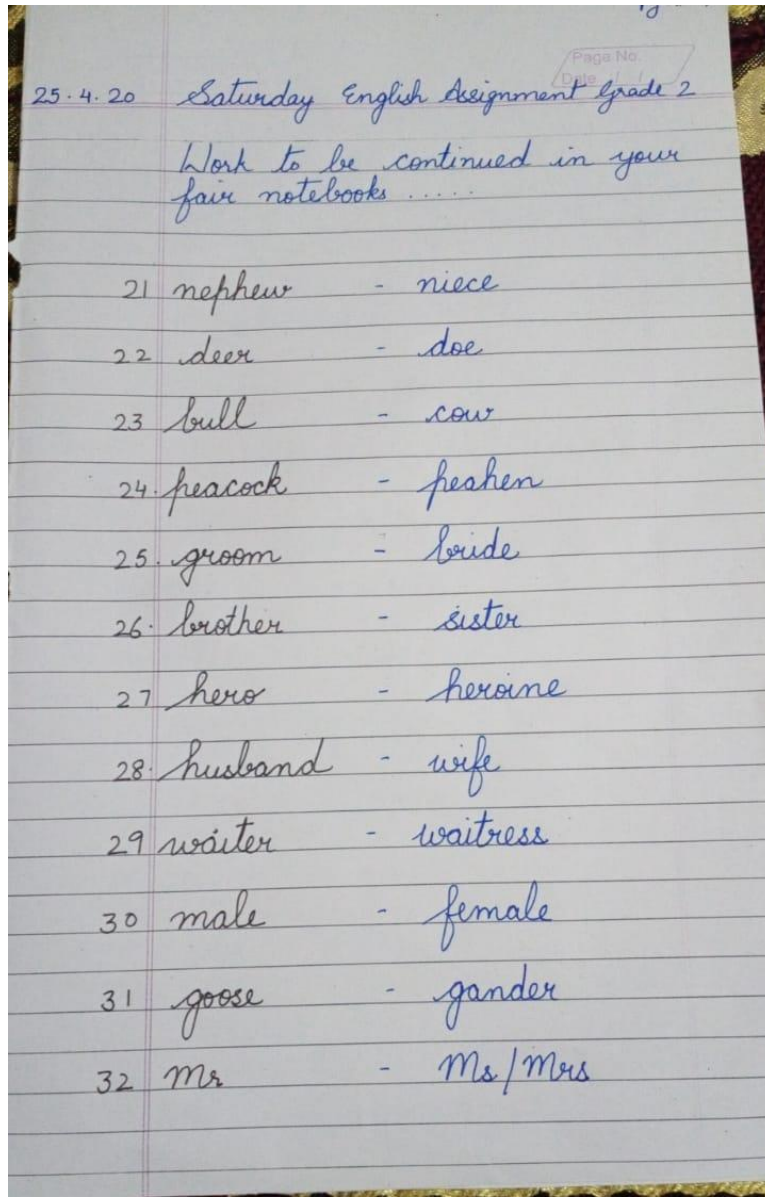 Page No.
Date / /
25.4.20 Saturday English Assignment Grade 2
Work to be continued in your
fair notebooks .....
21 nephew - niece
22 deer - doe
23 bull - cow
24. peacock - peahen
25. groom - bride
26. brother - sister
27 hero - heroine
28. husband - wife
29 waiter - waitress
30 male - female
31 goose - gander
32 Mr - Ms/Mrs